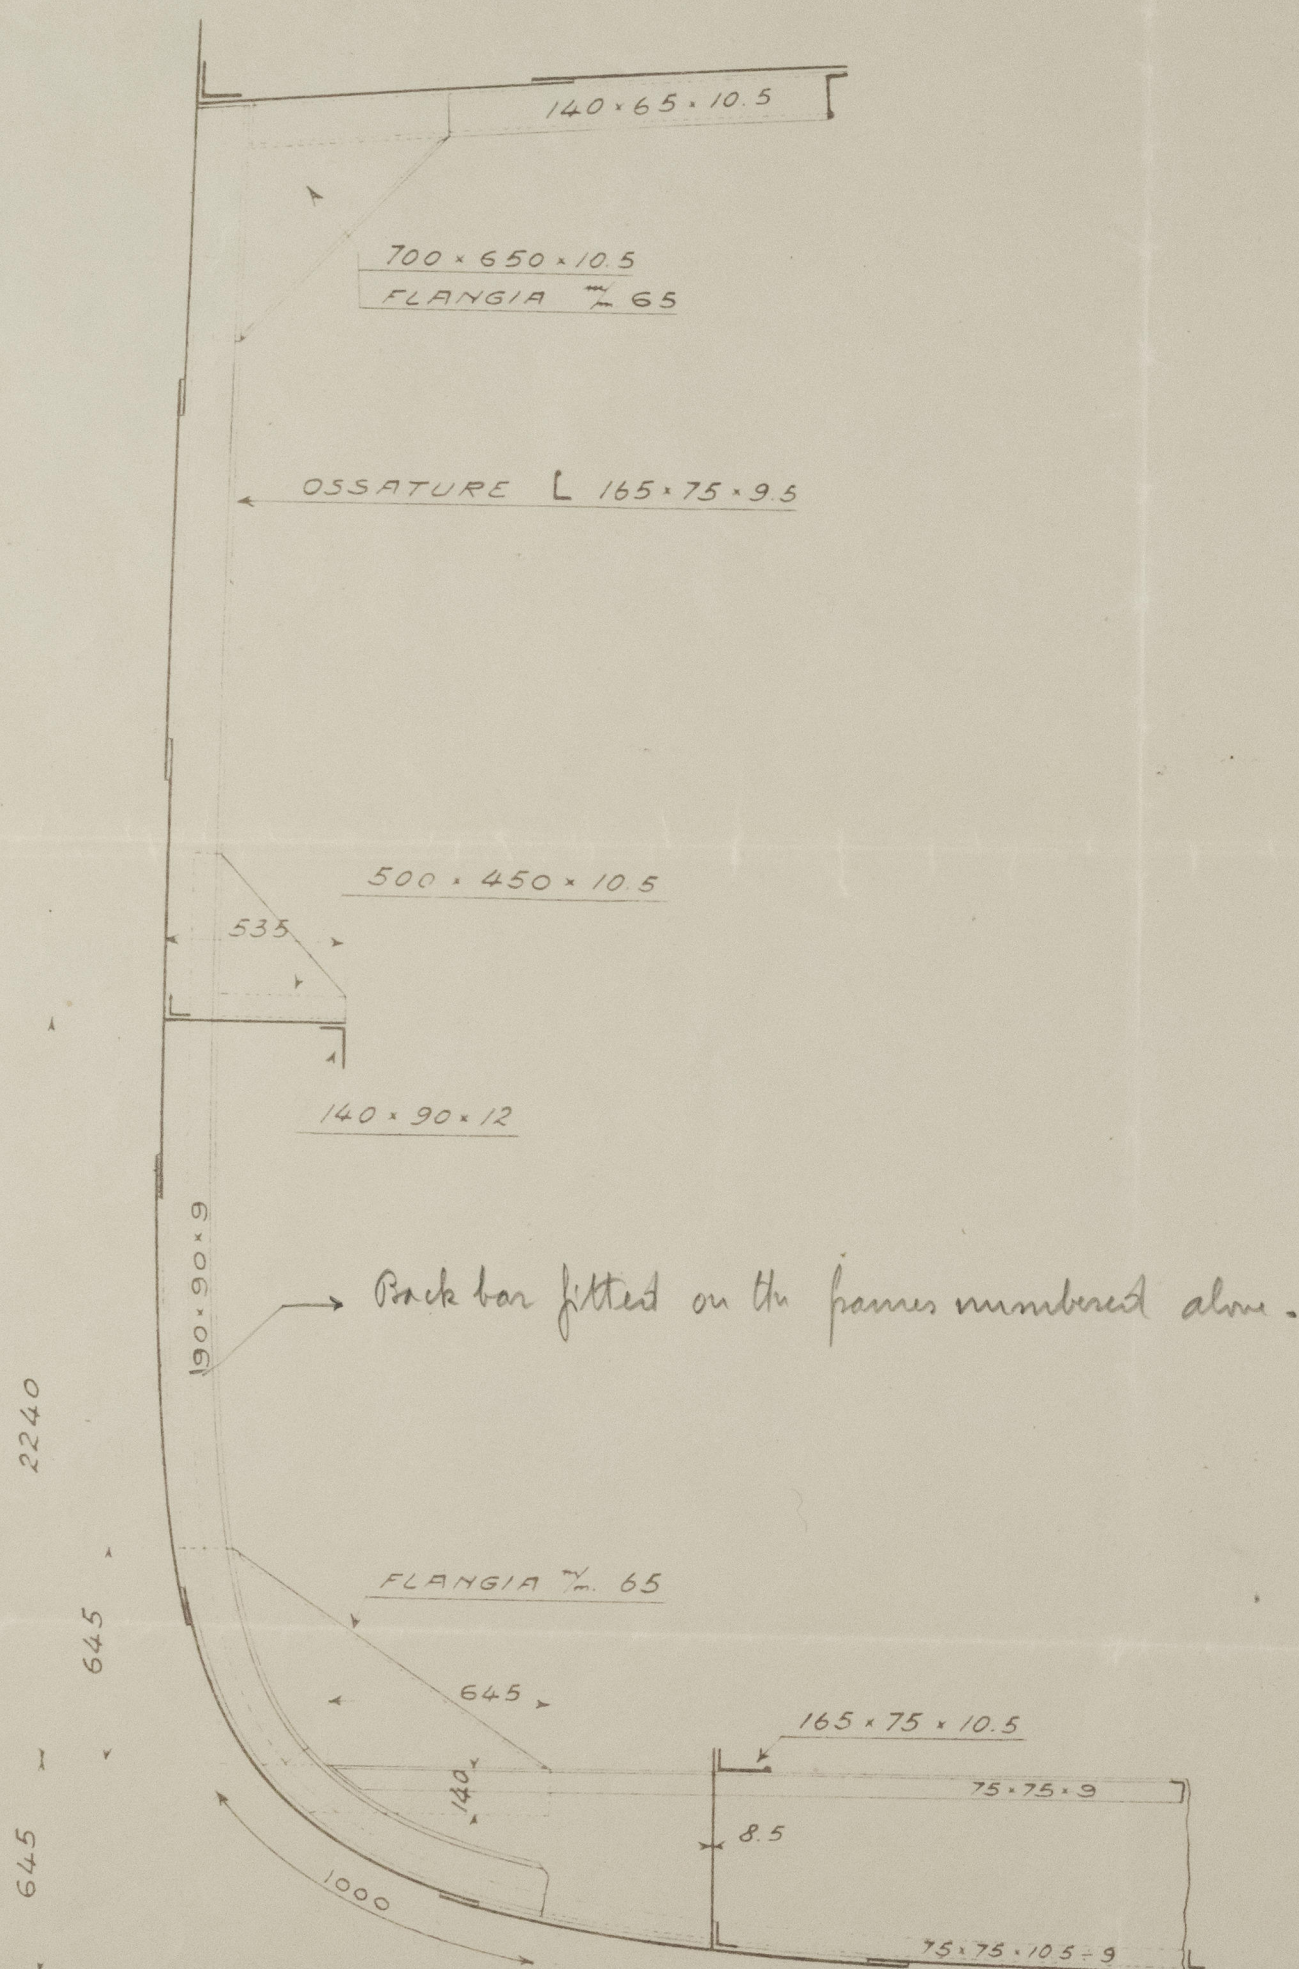 140×65×10.5
700×650×10.5
FLANGIA m/m 65
OSSATURE L 165×75×9.5
500×450×10.5
535
140×90×12
90×90×9
Back bar fitted on the frames numbered above.
2240
FLANGIA m/m. 65
645
645
165×75×10.5
140
75×75×9
8.5
645
1000
75×75×10.5÷9